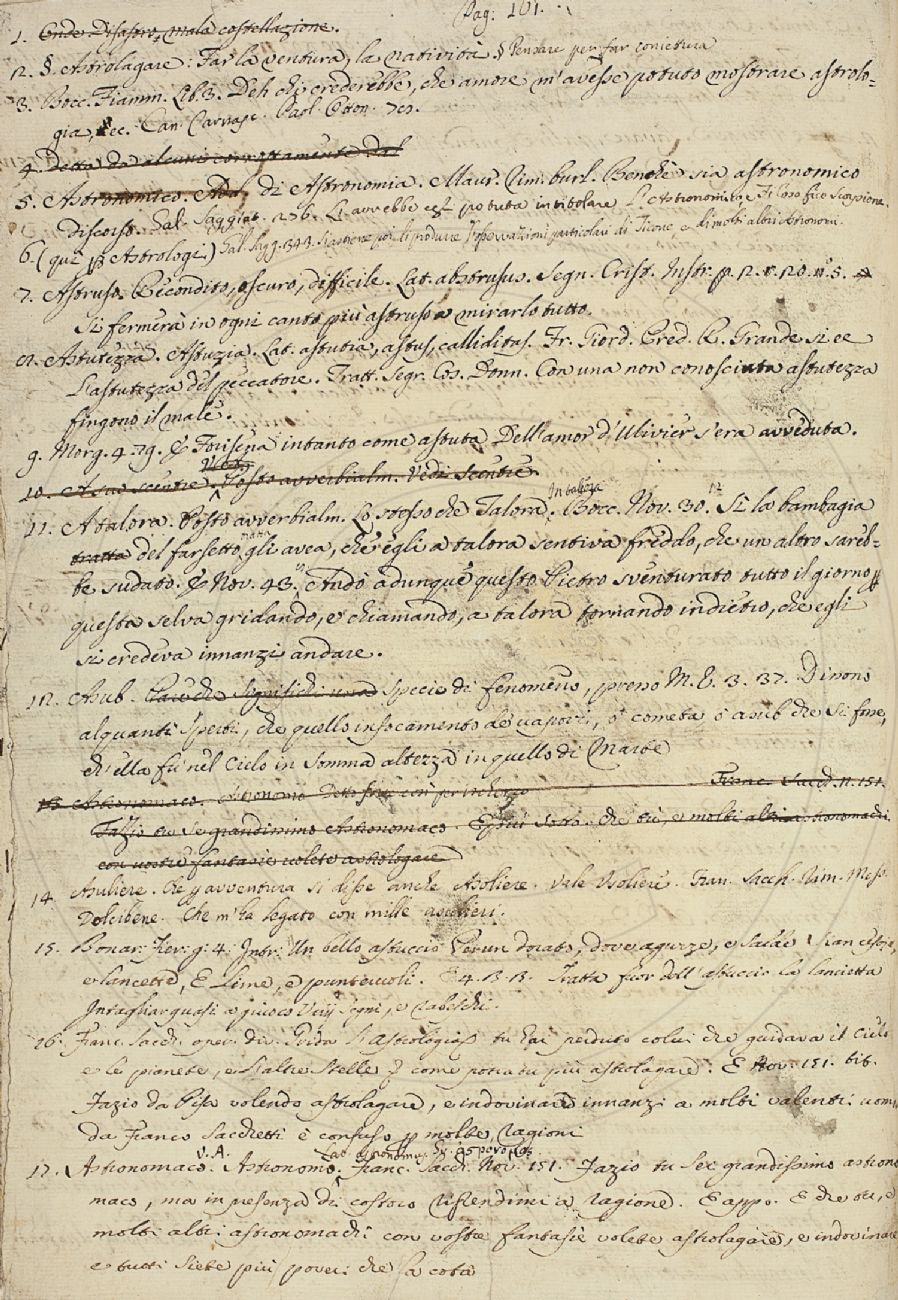 Pag: 101.
1. Onde Disastro, mala costellazione.
2. §. Astrolagare: Far la ventura, la natività § Pensare per far coniettura
3. Bocc. Fiamm. Lib. 3. Deh chi crederebbe, che amore m'avesse potuto mostrare astrolo-
gia, ec. Can. Carnasc. Paol. Otton.
4. detta da alcuni corrottamente dal
5. Astronomico. Add. di Astronomia. Maur. Rim. burl. Benchè sia astronomico
discorso. Gal. Saggiat. L'avrebbe potuta intitolare L'Astronomica, Il Loro fico Scorpione.
6. (qui Astrologi) Gal. Sagg. 343. produrre l'osservazioni particolari di Ticone, e di molti altri Astronomi.
7. Astruso. Recondito, oscuro, difficile. Lat. abstrusus. Segn. Crist. Instr. p. 2. r. 20. n. 5.
Si fermerà in ogni canto più astruso a mirarlo tutto.
8. Astutezza. Astuzia. Lat. astutia, astus, calliditas. Fr. Giord. Pred. R. Grande si è
l'astutezza del peccatore. Tratt. Segr. Cos. Donn. Con una non conosciuta astutezza
fingono il male.
9. Morg. 4. 79. E Forisena intanto come astuta Dell'amor d'Ulivier s'era avveduta.
10. A suo scentre. Posto avverbialm. Vedi Scentre.
11. A talora. Posto avverbialm. Lo stesso che Talora. Bocc. Nov. 30. 12 Sì la bambagia
tratta del farsetto gli avea, che egli a talora sentiva freddo, che un altro sareb-
be sudato. E Nov. 43. Andò adunque questo Pietro sventurato tutto il giorno p
questa selva gridando, e chiamando, a talora tornando indietro, che egli
si credeva innanzi andare.
12. Asub. Pare che significhi una specie di fenomeno, presso M. V. 3. 37. Dissono
alquanti sperti, che quello infocamento de' vapori, o cometa o asub che si fosse,
ch'ella fu nel Cielo in somma altezza in quello di Marte
13 Astronomaco. Astronomo Detto per ischerzo Franc. Sacch. n. 151.
Fazio tu se grandissimo Astronomaco. E più sotto che tu, e molti altri astronomachi
con vostre fantasie volete astrologare
14. Asuliere. Che p avventura si disse anche Asoliere. Vale Usoliere. Fran. Sacch. Rim. Mess.
Dolcibene. Che m'ha legato con mille asulieri.
15. Bonar: Fier: g: 4: Intr: Un bello astuccio Perun dorato, dove aguzze, e salde Stian cesoie,
e lancette, E Lime, e punteruoli. E 4. Tratta fuor dell'astuccio la lancetta
Intagliar quasi e giuoco Varj segni, e rabeschi.
16. Franc. Sacch. oper. div. Grida l'astrologia, tu hai perduto colui che guidava il Cielo
e le pianete, e l'altre stelle, e come potrai tu più astrolagare. E Nov. 151. tit.
Fazio da Pisa volendo astrolagare, e indovinare innanzi a molti valentri uomi
da Franco Sacchetti è confuso p molte ragioni
17. Astronomaco. V. A. Astronomo. Lat. astronomus. Gr. ἀστρονόμος. Franc. Sacch. Nov. 151. Fazio tu se' grandissimo astrono
maco, ma in presenza di costoro rispondimi a ragione. E appo. E che tu, e
molti altri astronomachi con vostre fantasie volete astrolagare, e indovinare
e tutti siete più poveri che la cota